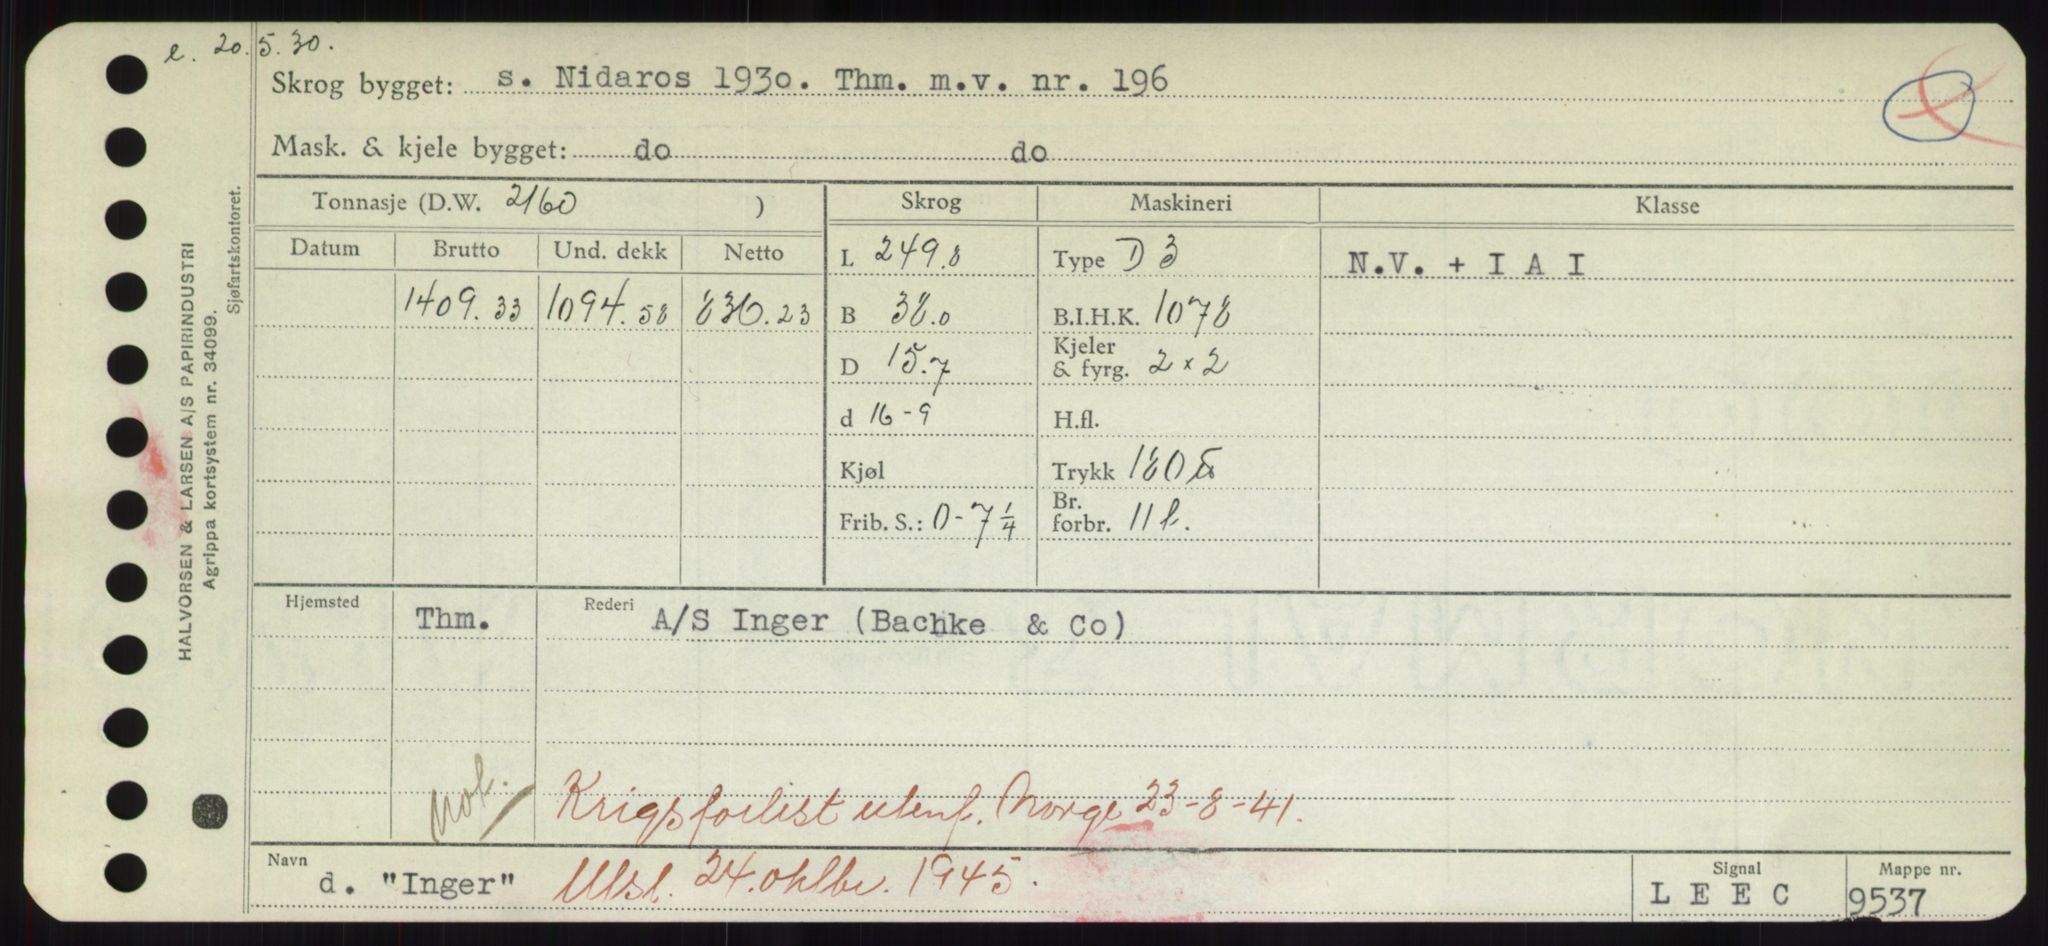 e. 20.5.30.
Skrog bygget: s. Nidaros 1930. Thm. m.v. nr. 196
Mask. & kjele bygget: do do
HALVORSEN & LARSEN A/S PAPIRINDUSTRI
Agrippa kortsystem nr. 34099.
Sjøfartskontoret.
Tonnasje (D.W. 2160 ) Skrog Maskineri Klasse
Datum Brutto Und. dekk Netto L 249.8 Type D 3 N.V. + I A I
1409.33 1094.58 836.23 B 38.0 B.I.H.K. 1078
D 15.7 Kjeler & fyrg. 2 x 2
d 16-9 H.fl.
Kjøl Trykk 180
Frib. S.: 0-7 1/4 Br. forbr. 11 t.
Hjemsted Thm. Rederi A/S Inger (Bachke & Co)
Krigsforlist utenf. Norge 23-8-41.
Navn d. "Inger" Utsl. 24. oktbr. 1945. Signal L E E C Mappe nr. 9537